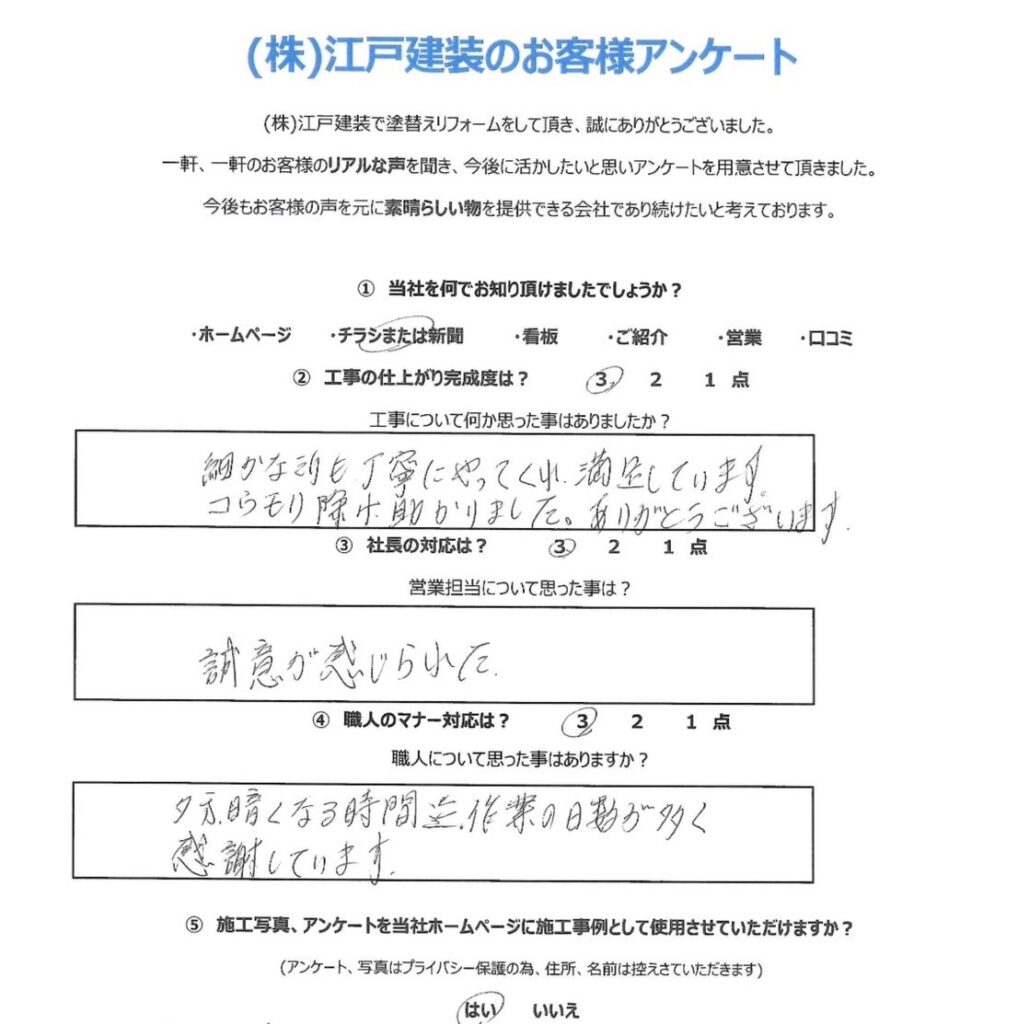 (株)江戸建装のお客様アンケート
(株)江戸建装で塗替えリフォームをして頂き、誠にありがとうございました。
一軒、一軒のお客様のリアルな声を聞き、今後に活かしたいと思いアンケートを用意させて頂きました。
今後もお客様の声を元に素晴らしい物を提供できる会社であり続けたいと考えております。
① 当社を何でお知り頂けましたでしょうか？
・ホームページ ・チラシまたは新聞 ・看板 ・ご紹介 ・営業 ・口コミ
② 工事の仕上がり完成度は？ 3 2 1 点
工事について何か思った事はありましたか？
細かな所も丁寧にやってくれ、満足しています
コウモリ除け助かりました。ありがとうございます.
③ 社長の対応は？ 3 2 1 点
営業担当について思った事は？
誠意が感じられた.
④ 職人のマナー対応は？ 3 2 1 点
職人について思った事はありますか？
夕方、暗くなる時間迄、作業の日数が多く
感謝しています.
⑤ 施工写真、アンケートを当社ホームページに施工事例として使用させていただけますか？
(アンケート、写真はプライバシー保護の為、住所、名前は控えさていただきます)
はい いいえ